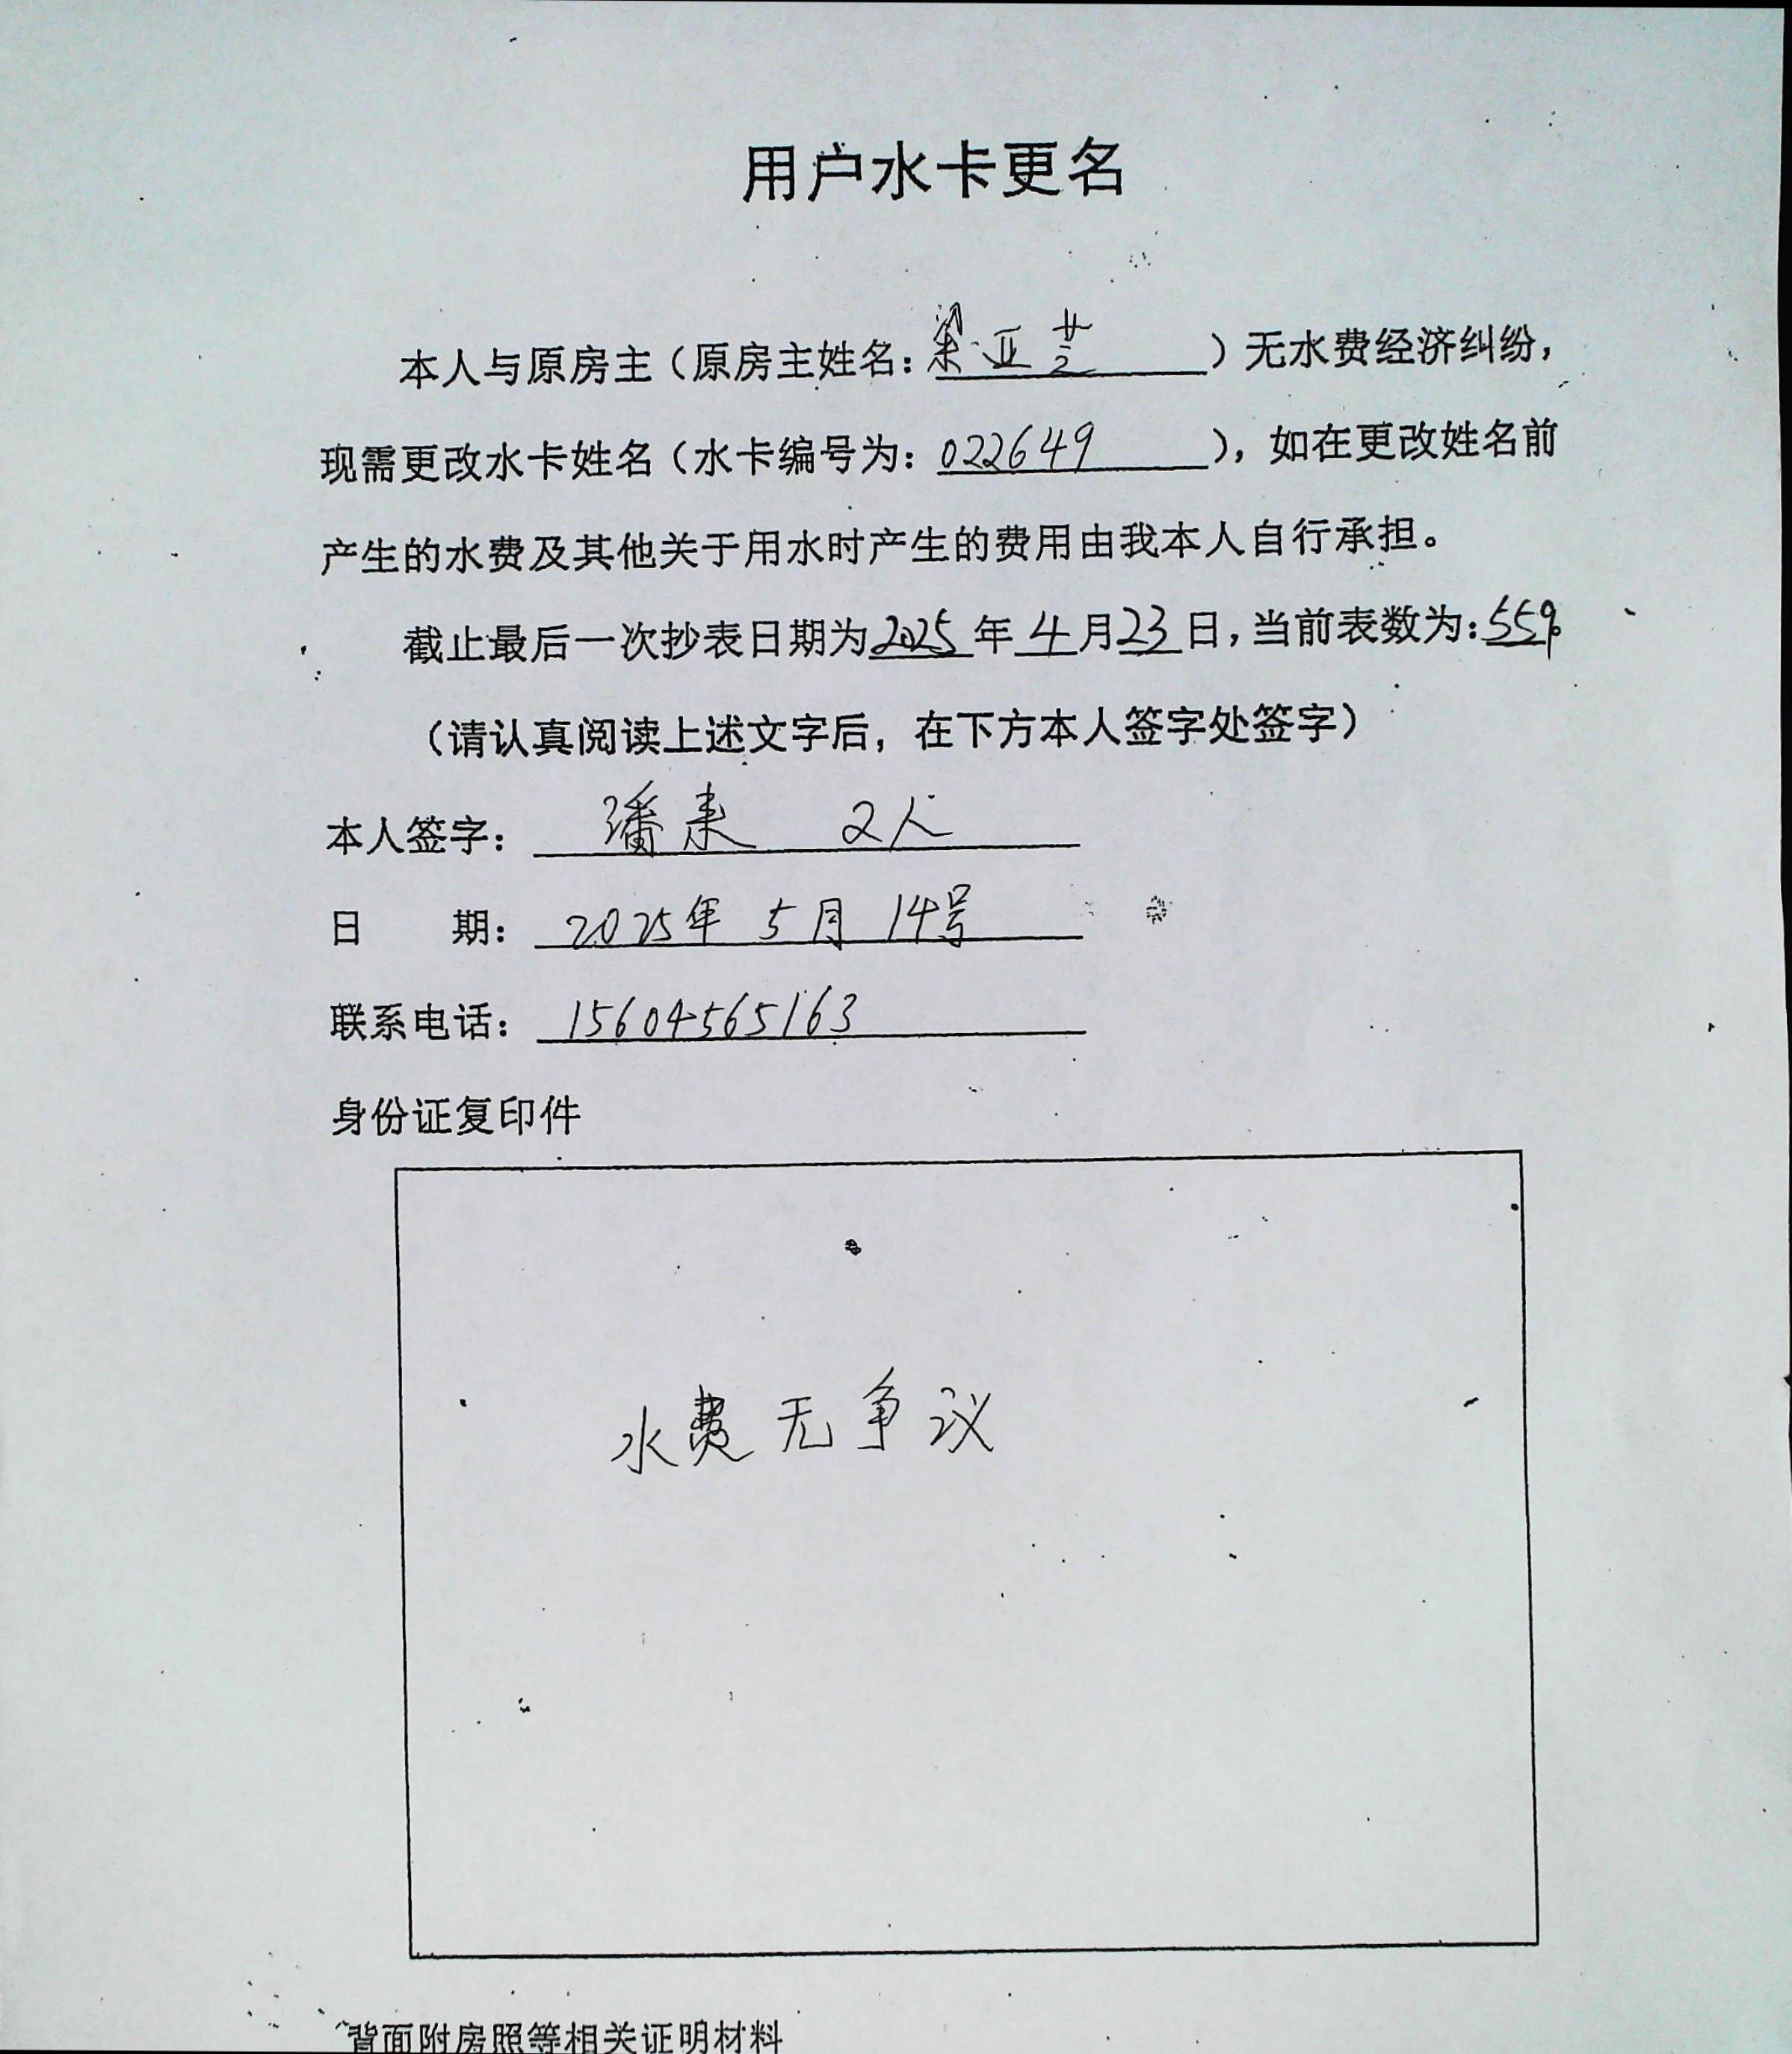 用户水卡更名
本人与原房主（原房主姓名：梁亚芝）无水费经济纠纷，
现需更改水卡姓名（水卡编号为：022649），如在更改姓名前
产生的水费及其他关于用水时产生的费用由我本人自行承担。
截止最后一次抄表日期为2025年4月23日，当前表数为：559
（请认真阅读上述文字后，在下方本人签字处签字）
本人签字：潘 2人
日 期：2025年 5月 14号
联系电话：15604565163
身份证复印件
水费无争议
背面附房照等相关证明材料